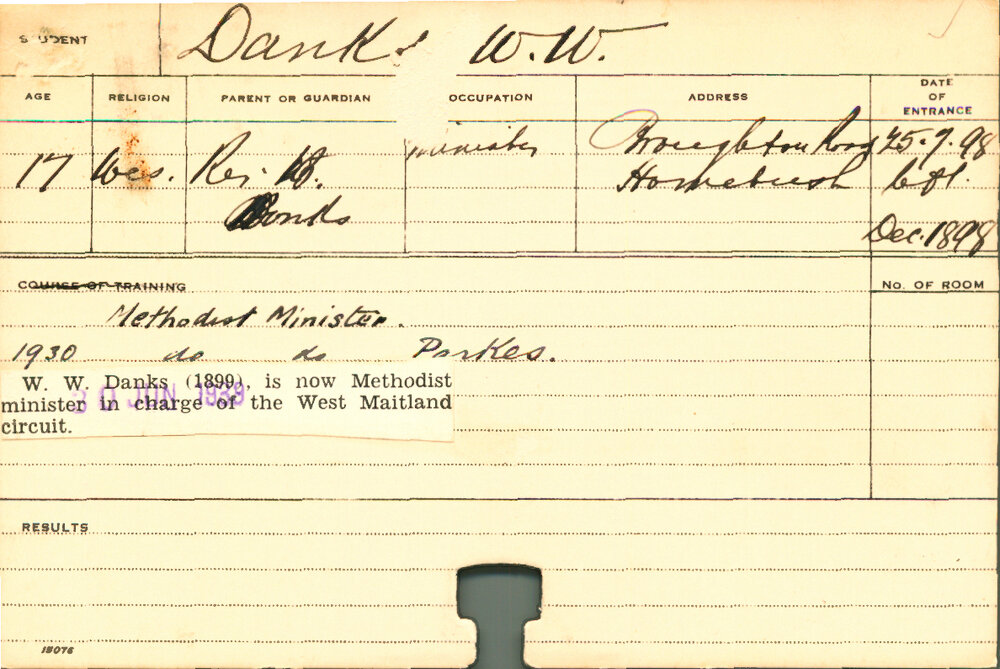 STUDENT Danks W.W.
AGE RELIGION PARENT OR GUARDIAN OCCUPATION ADDRESS DATE OF ENTRANCE
17 Wes. Rev. W. minister Broughton Road 25.7.98
Danks Homebush left
Dec. 1898
COURSE OF TRAINING No. OF ROOM
Methodist Minister.
1930 do do Parkes.
W. W. Danks (1899), is now Methodist
minister in charge of the West Maitland
circuit.
30 JUN 1939
RESULTS
15076